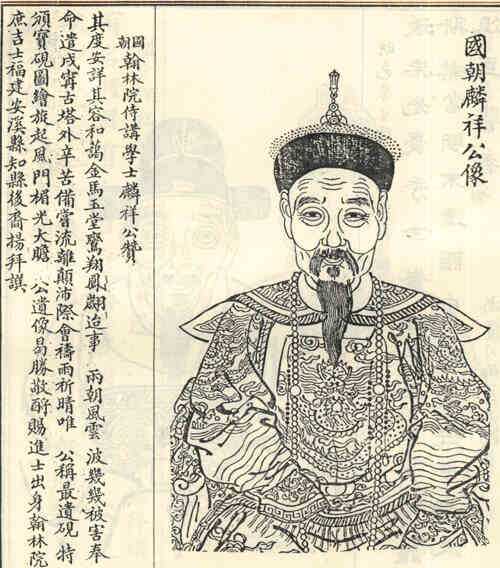 國朝麟祥公像
國朝翰林院侍講學士麟祥公贊
其度安詳其容和藹金馬玉堂鸞翔鳳翽迨事 兩朝風雲 波幾幾被害奉
命遣戍寧古塔外辛苦備嘗流離顛沛際會禱雨祈晴唯 公稱最遺硯 特
頒寶硯圖繪旋起風門楣光大瞻 公遺像曷勝敬酹賜進士出身翰林院
庶吉士福建安溪縣知縣後裔揚拜譔